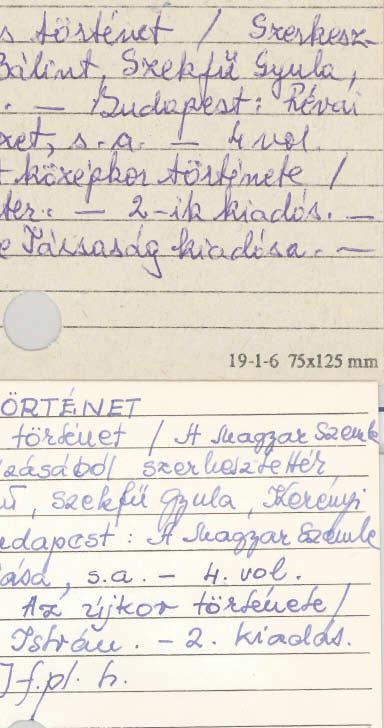 s történet / Szerkesz-
Bálint, Szekfű Gyula,
. — Budapest: Révai
zet, s.a. — 4 vol.
t középkor története /
ter. — 2-ik kiadós. —
e Társaság kiadósa. —
19-1-6 75x125 mm
ÖRTÉNET
történet / A Magyar Szemle
ozásából szerkesztettér
, Szekfű Gyula, Kerényi
udapest: A Magyar Szemle
ása, s.a. — 4. vol.
Az újkor története /
István. — 2. kiadás.
] f. pl. h.